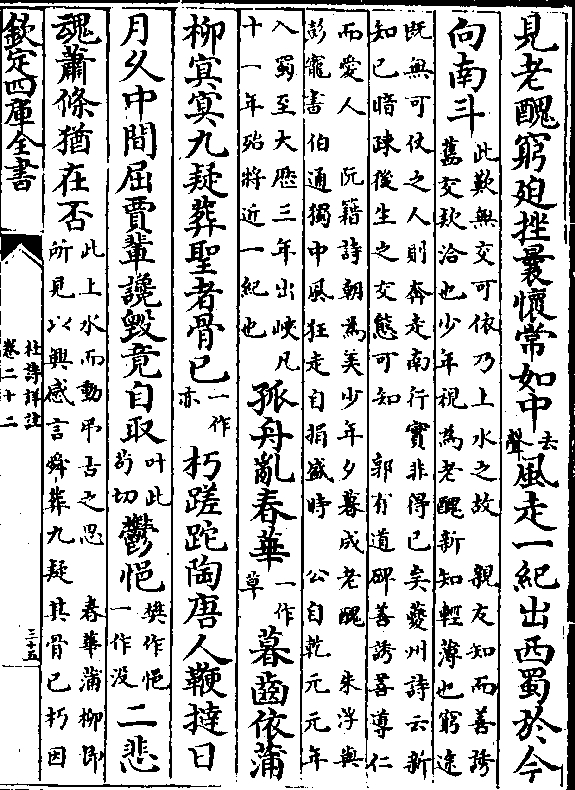 見老醜窮迫挫曩懷常如中去聲風走一紀出西蜀於今
向南斗
此歎無交可依乃上水之故 親友知而善誘
舊交欵洽也少年視為老醜新知輕薄也窮途
既無可仗之人則奔走南行實非得已矣夔州詩云新
知已暗疎後生之交態可知 郭有道碑善誘善導仁
而愛人 阮籍詩朝為美少年夕暮成老醜 朱浮與
彭寵書伯通獨中風狂走自捐盛時 公自乾元元年
入蜀至大厯三年出峽凡
十一年殆將近一紀也
孤舟亂春華一作草暮齒依蒲
柳㝠㝠九疑葬聖者骨已一作亦朽蹉跎陶唐人鞭撻日
月久中間屈賈輩讒毁竟自取叶此茍切鬱悒樊作悒一作没二悲
魂蕭條猶在否
此上水而動弔古之思 春華蒲柳即
所見以興感言舜葬九疑其骨已朽因
欽定四庫全書
杜詩詳註
卷二十二
三十五